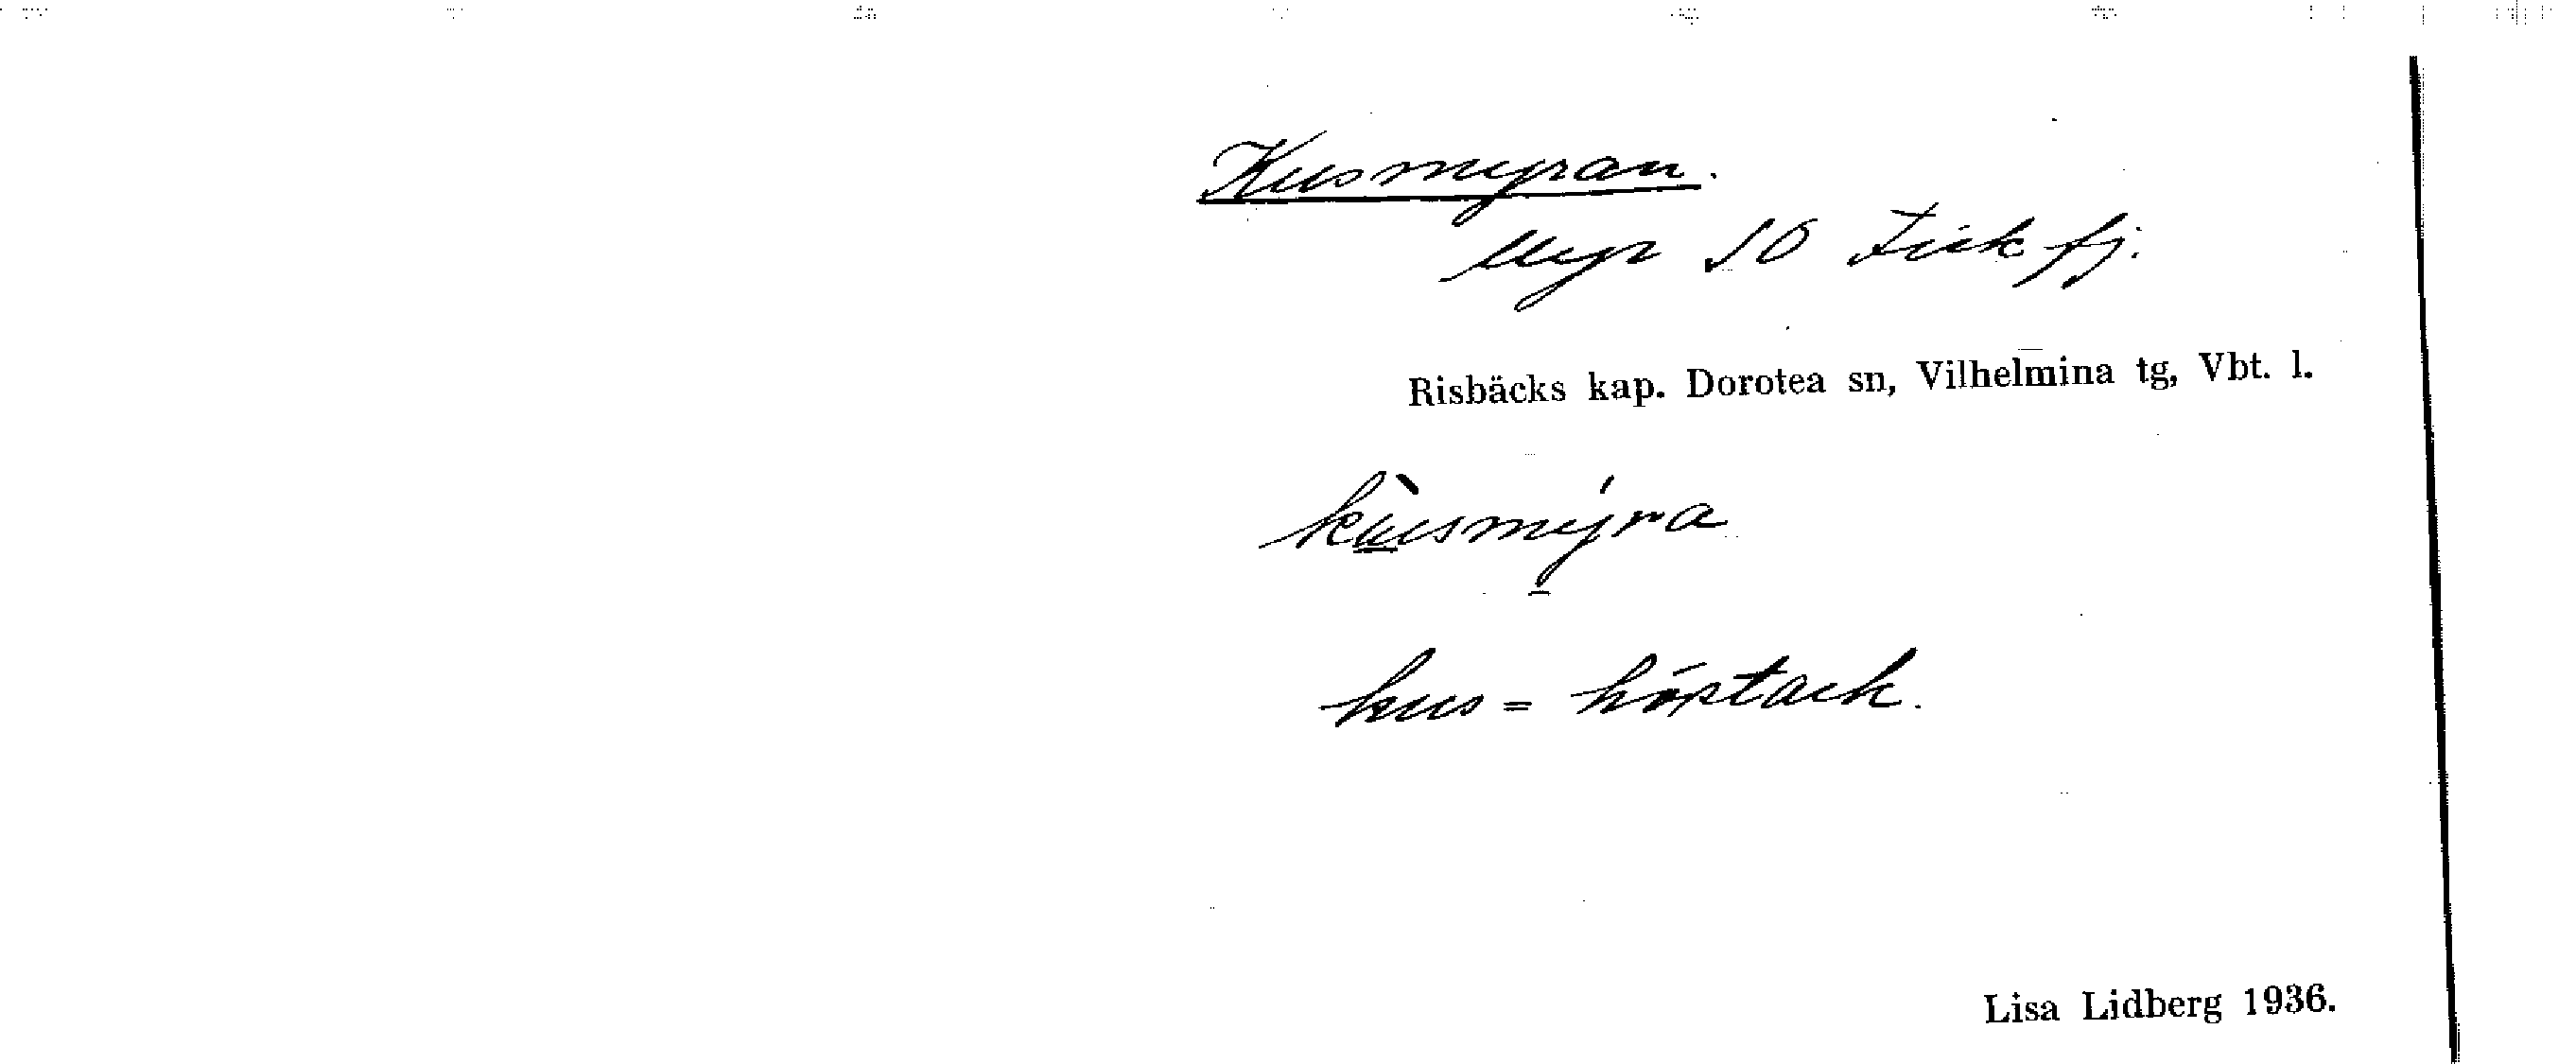 Kusmyran.
Myr SO Tick fj.
Risbäcks kap. Dorotea sn, Vilhelmina tg, Vbt. l.
kùsmýra
kus = höstack.
Lisa Lidberg 1936.